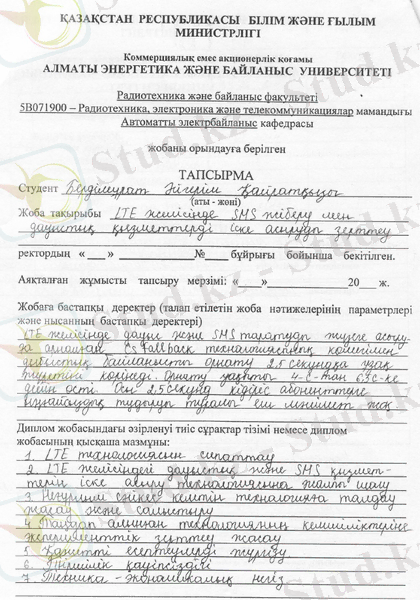 ҚАЗАҚСТАН РЕСПУБЛИКАСЫ БІЛІМ ЖӘНЕ ҒЫЛЫМ
МИНИСТРЛІГІ
Коммерциялық емес акционерлік қоғамы
АЛМАТЫ ЭНЕРГЕТИКА ЖӘНЕ БАЙЛАНЫС УНИВЕРСИТЕТІ
Радиотехника және байланыс факультеті
5В071900 – Радиотехника, электроника және телекоммуникациялар мамандығы
Автоматты электрбайланыс кафедрасы
жобаны орындауға берілген
ТАПСЫРМА
Студент Бердімұрат Әйгерім Қайратқызы
(аты - жөні)
Жоба тақырыбы LTE желісінде SMS жіберу мен
дауыстық қызметтерді іске асыруды зерттеу
ректордың «___» ________ №____ бұйрығы бойынша бекітілген.
Аяқталған жұмысты тапсыру мерзімі: «___» __________ 20___ ж.
Жобаға бастапқы деректер (талап етілетін жоба нәтижелерінің параметрлері
және нысанның бастапқы деректері)
LTE желісінде дауыс және SMS таратуды жүзеге асыру-
CS Fallback технологиясының көмегімен
дауыстық байланысты орнату 2,5 секундқа ұзақ
Орнату уақыты 4 с-тан 6,5 с-ке
дейін өсті Осы 2,5 секунд кідіріс абоненттерге
туралы еш мәлімет жоқ
Диплом жобасындағы әзірленуі тиіс сұрақтар тізімі немесе диплом
жобасының қысқаша мазмұны:
1. LTE технологиясын сипаттау
2. LTE желісіндегі дауыстық және SMS қызмет-
терін іске асыру технологиясына жалпы шолу
3. Неғұрлым еңікке келетін технологияға талдау
жасау және салыстыру
4 Таңдап алынған технологияның кемшіліктеріне
эксперименттік зерттеу жасау
5. Қажетті есептеулерді жүргізу
6. Өміршілік қауіпсіздігі
7. Техника - экономикалық негіз
Stud.kz - Stud.kz
Stud.kz